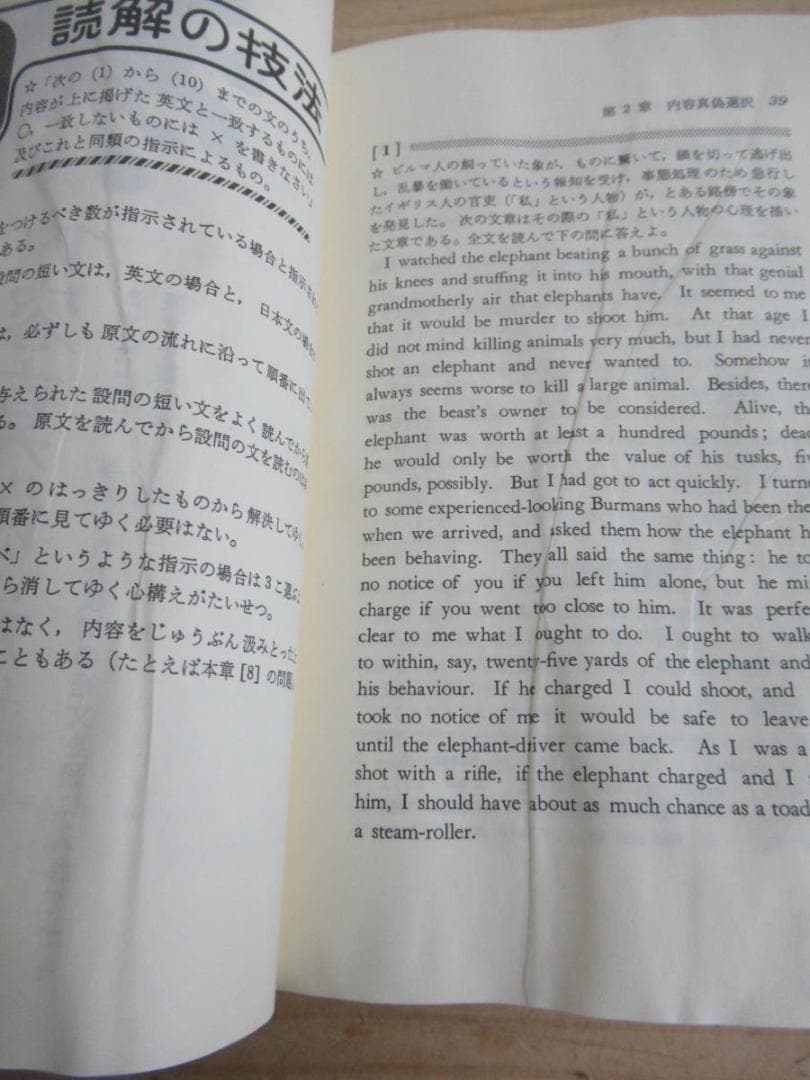 読解の技法
☆「次の (1) から (10) までの文のうち,
内容が上に掲げた 英文と一致するものには
○, 一致しないものには × を書きなさい」
及びこれと同類の指示によるもの。
をつけるべき数が指示されている場合と指示され
ある。
設問の短い文は, 英文の場合と, 日本文の場合
は, 必ずしも 原文の流れに沿って順番に出てい
与えられた 設問の短い文をよく読んでから
る。 原文を読んでから設問の文を読むのは
× のはっきりしたものから 解決してゆく
順番に見てゆく必要はない。
べ」というような指示の場合は3こ選ぶ
ら消してゆく心構えがたいせつ。
はなく, 内容をじゅうぶん汲みとった上
こともある (たとえば本章 [8] の問題
第2章 内容真偽選択 39
[1]
☆ ビルマ人の飼っていた象が, ものに驚いて, 鎖を切って逃げ出
し, 乱暴を働いているという報知を受け, 事態処理のため急行し
たイギリス人の官吏 (「私」という人物) が, とある路傍でその象
を発見した。 次の文章はその際の「私」という人物の心理を描い
た文章である。全文を読んで下の問に答えよ。
I watched the elephant beating a bunch of grass against
his knees and stuffing it into his mouth, with that genial
grandmotherly air that elephants have. It seemed to me
that it would be murder to shoot him. At that age I
did not mind killing animals very much, but I had never
shot an elephant and never wanted to. Somehow it
always seems worse to kill a large animal. Besides, there
was the beast's owner to be considered. Alive, th
elephant was worth at least a hundred pounds; dead
he would only be worth the value of his tusks, fiv
pounds, possibly. But I had got to act quickly. I turne
to some experienced-looking Burmans who had been the
when we arrived, and asked them how the elephant h
been behaving. They all said the same thing: he to
no notice of you if you left him alone, but he mi
charge if you went too close to him. It was perfe
clear to me what I ought to do. I ought to walk
to within, say, twenty-five yards of the elephant and
his behaviour. If he charged I could shoot, and
took no notice of me it would be safe to leave
until the elephant-driver came back. As I was a
shot with a rifle, if the elephant charged and I
him, I should have about as much chance as a toad
a steam-roller.